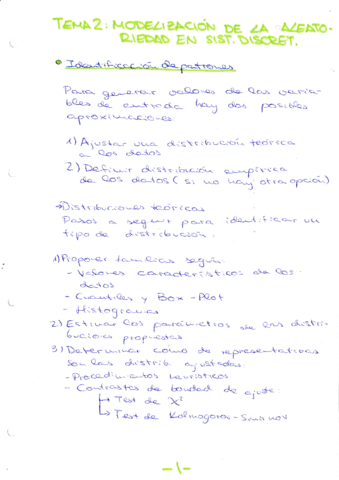 TEMA 2: MODELIZACIÓN DE LA ALEATO-
RIEDAD EN SIST. DISCRET.
Identificación de patrones
Para generar valores de las varia-
bles de entrada hay dos posibles
aproximaciones
1) Ajustar una distribución teórica
a los datos
2) Definir distribución empírica
de los datos (si no hay otra opción)
→ Distribuciones teóricas
Pasos a seguir para identificar un
tipo de distribución.
1) Proponer familias según:
- Valores característicos de los
datos
- Cuantiles y Box-Plot
- Histogramas
2) Estimar los parámetros de las distri-
buciones propuestas
3) Determinar como de representativas
son las distrib. ajustadas.
- Procedimientos heurísticos
- Contrastes de bondad de ajuste
→ Test de X²
→ Test de Kolmogorov-Smirnov
-1-